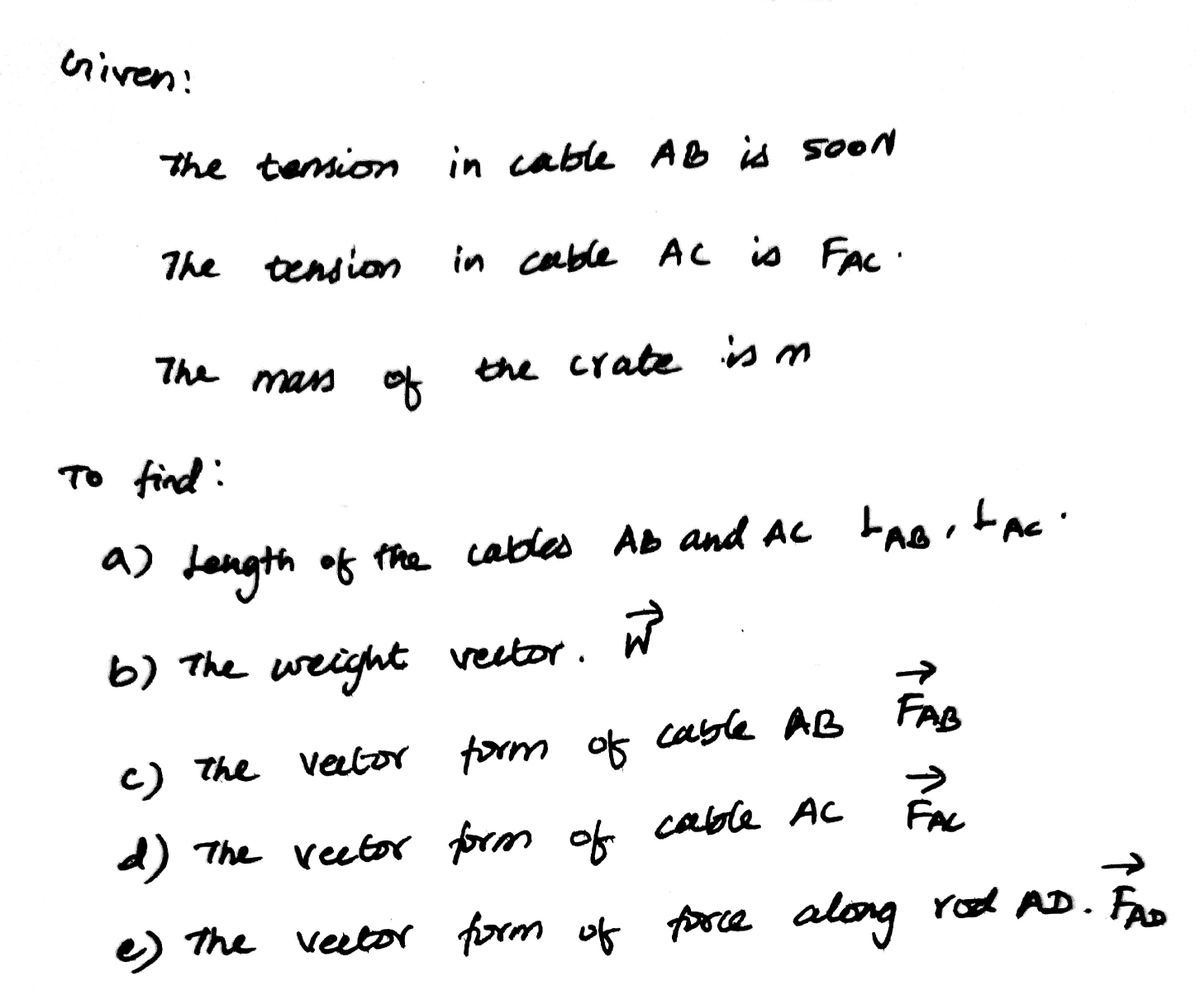 Given:
The tension in cable AB is 500N
The tension in cable AC is FAC.
The mass of the crate is m
To find:
a) Length of the cables AB and AC LAB, LAC.
b) The weight vector. W⃗
c) The vector form of cable AB F⃗AB
d) The vector form of cable AC F⃗AC
e) The vector form of force along rod AD. F⃗AD